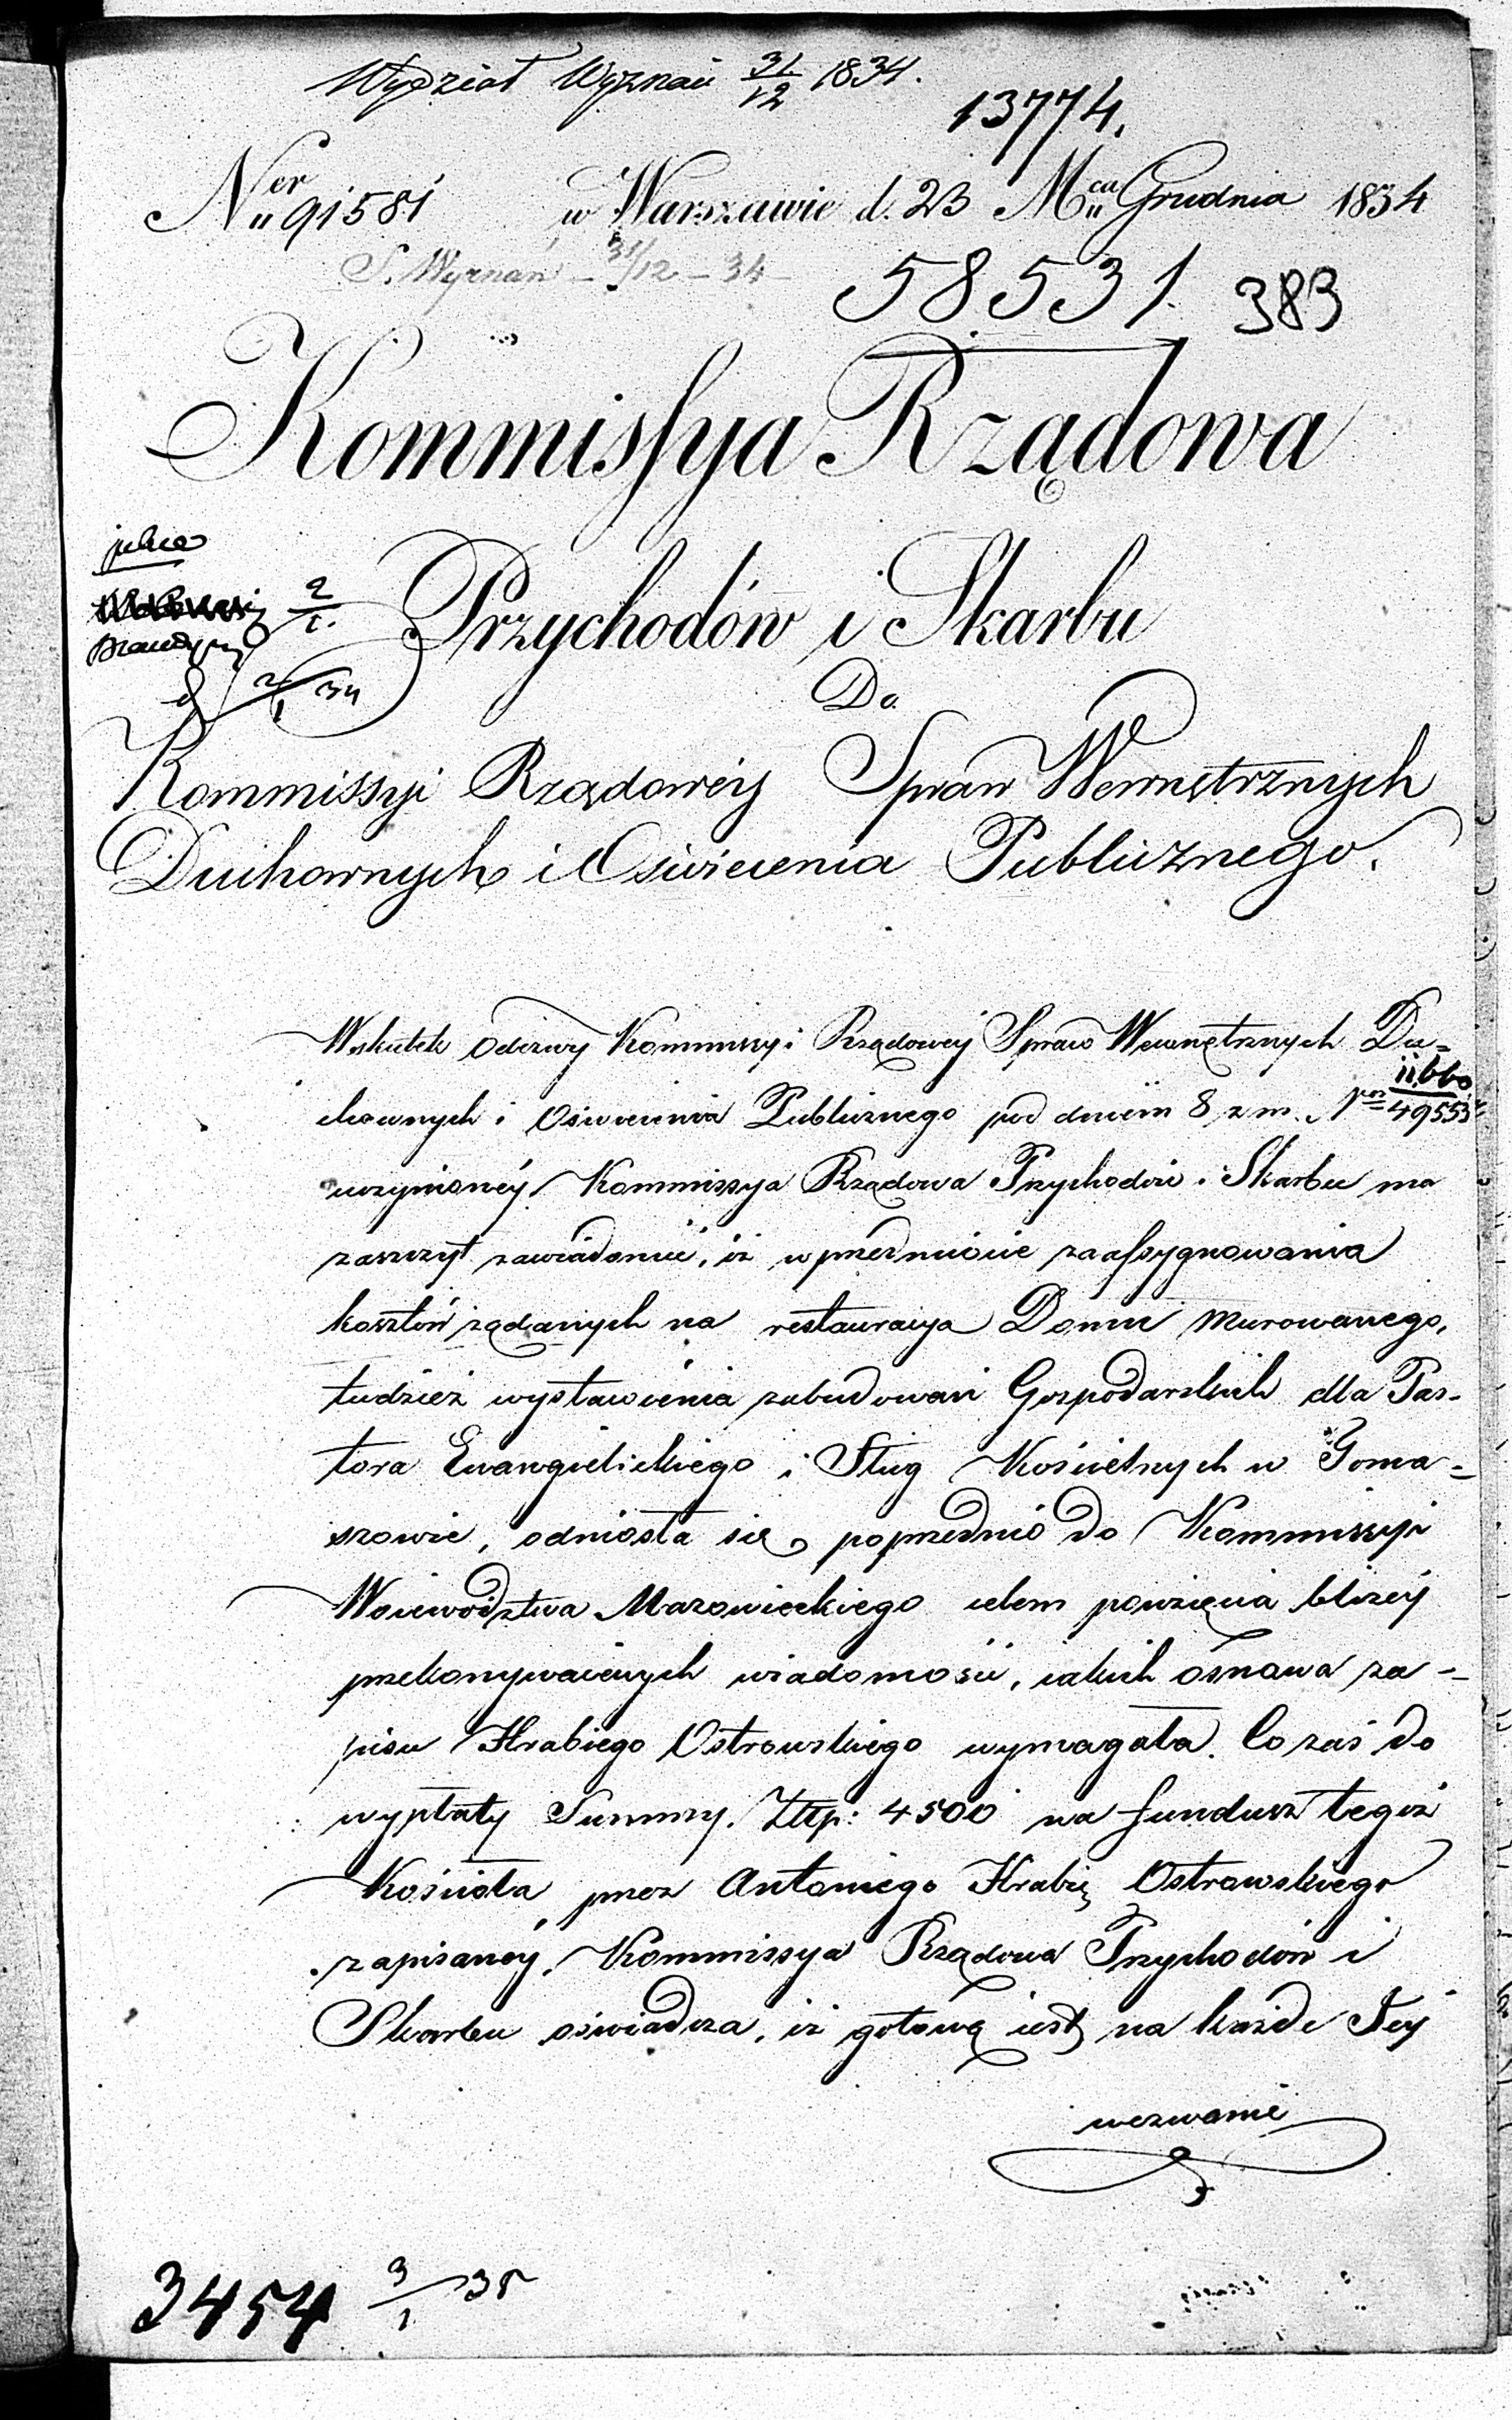 Wydział Wyznań 31/12 1834.
13774.
Ner 91581 w Warszawie d. 23 Mca Grudnia 1834
S. Wyznań – 31/12 – 34 –
58531. 383
Kommissya Rządowa
Przychodów i Skarbu
2/1.
2/1 34
Do
Kommissyi Rządowéy Spraw Wewnętrznych
Duchownych i Oświecenia Publicznego.
Wskutek Odezwy Kommissyi Rządowey Spraw Wewnętrznych Du=
chownych i Oświecenia Publicznego pod dniem 8 z m. Nro 11660/49553
uczynionéy. Kommissya Rządowa Przychodów i Skarbu ma
zaszczyt zawiadomić, iż w przedmiocie zaassygnowania
kosztów żądanych na restauracya Domu murowanego,
tudzież wystawienia zabudowań Gospodarskich dla Pas-
tora Ewangielickiego i Sług Kościelnych w Toma=
szowie, odniosła się poprzednio do Kommissyi
Woiewództwa Mazowieckiego celem powzięcia bliżéy
przekonywaiących wiadomości, iakich osnowa za=
pisu Hrabiego Ostrowskiego wymagała. Co zaś do
wypłaty Summy. Złtp: 4500 na fundusz tegoż
Kościoła przez Antoniego Hrabię Ostrowskiego
zapisanéy. Kommissya Rządowa Przychodów i
Skarbu oświadcza, iż gotową iest na każde Jey
wezwanie
3454 3/1 35